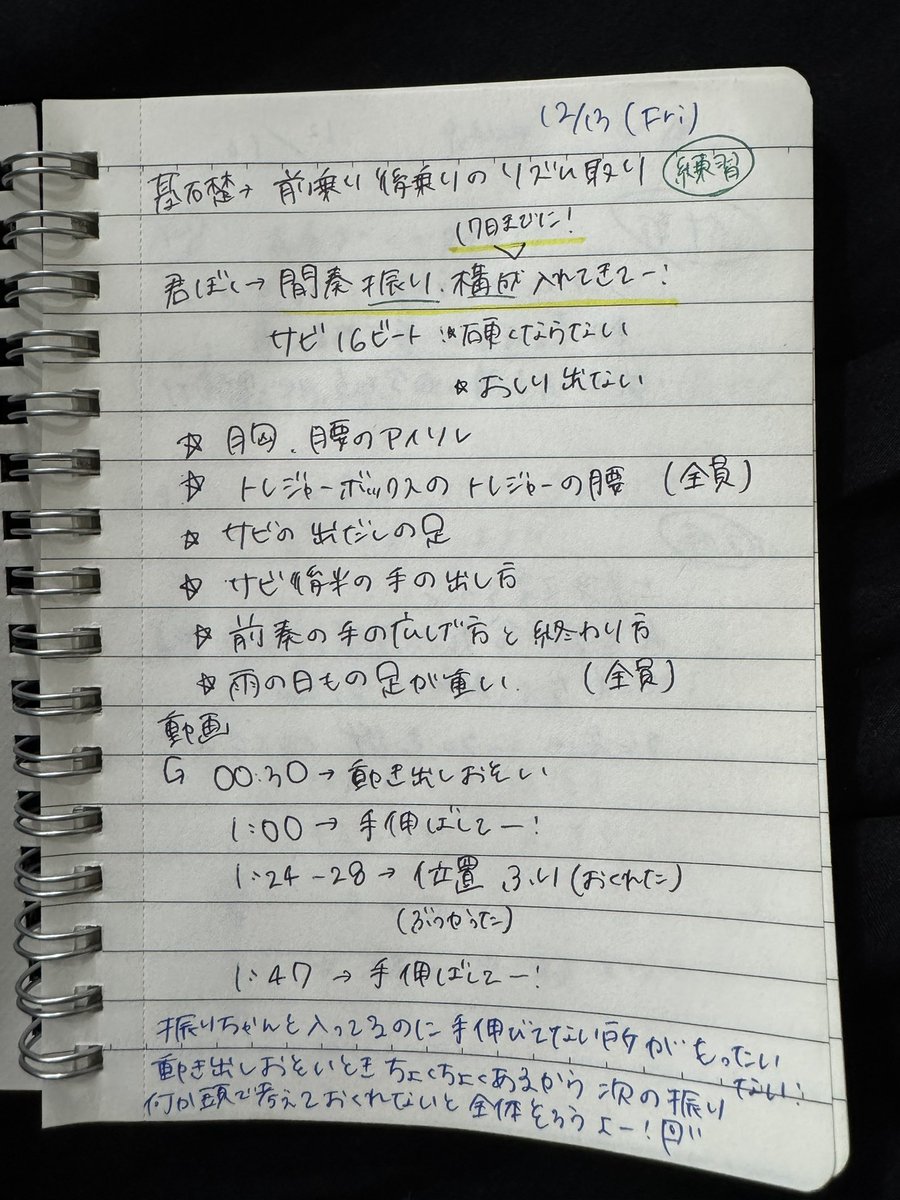 12/13 (Fri)
基礎→ 前乗り 後乗りの リズム取り 練習
17日までに!
君ぼく→ 間奏 振り、構成 入れてきてー!
サビ 16ビート ※硬くならない
☆ おしり出ない
☆ 胸、腰のアイソレ
☆ トレジャーボックスの トレジャーの腰 (全員)
☆ サビの 出だしの足
☆ サビ後半の 手の出し方
☆ 前奏の手の広げ方と 終わり方
☆ 雨の日もの 足が重い. (全員)
動画
00:30 → 動き出しおそい
1:00 → 手伸ばしてー!
1:24-28 → 位置 (おくれた)
(ぶつかった)
1:47 → 手伸ばしてー!
振りちゃんと入ってるのに 手伸びてない所が もったい
ない!
動き出しおそいとき ちょくちょくあるから 次の振り
何か頭で考えておくれないと 全体そろうよー!